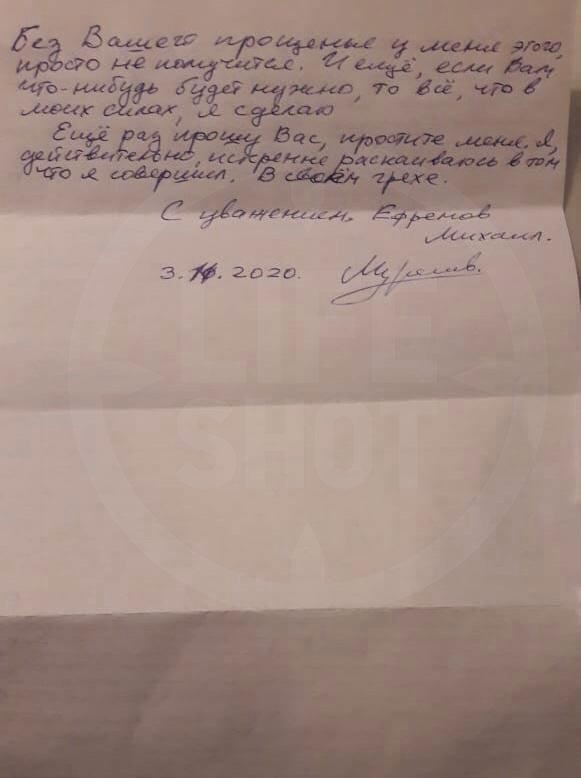 Без Вашего прощенья у меня этого,
просто не получится. И ещё, если Вам,
что-нибудь будет нужно, то всё, что в
моих силах, я сделаю
Ещё раз прошу Вас, простите меня. Я,
действительно, искренне раскаиваюсь в том
что я совершил. В своём грехе.
С уважением Ефремов
Михаил.
3. .2020.
LIFE
SHOT